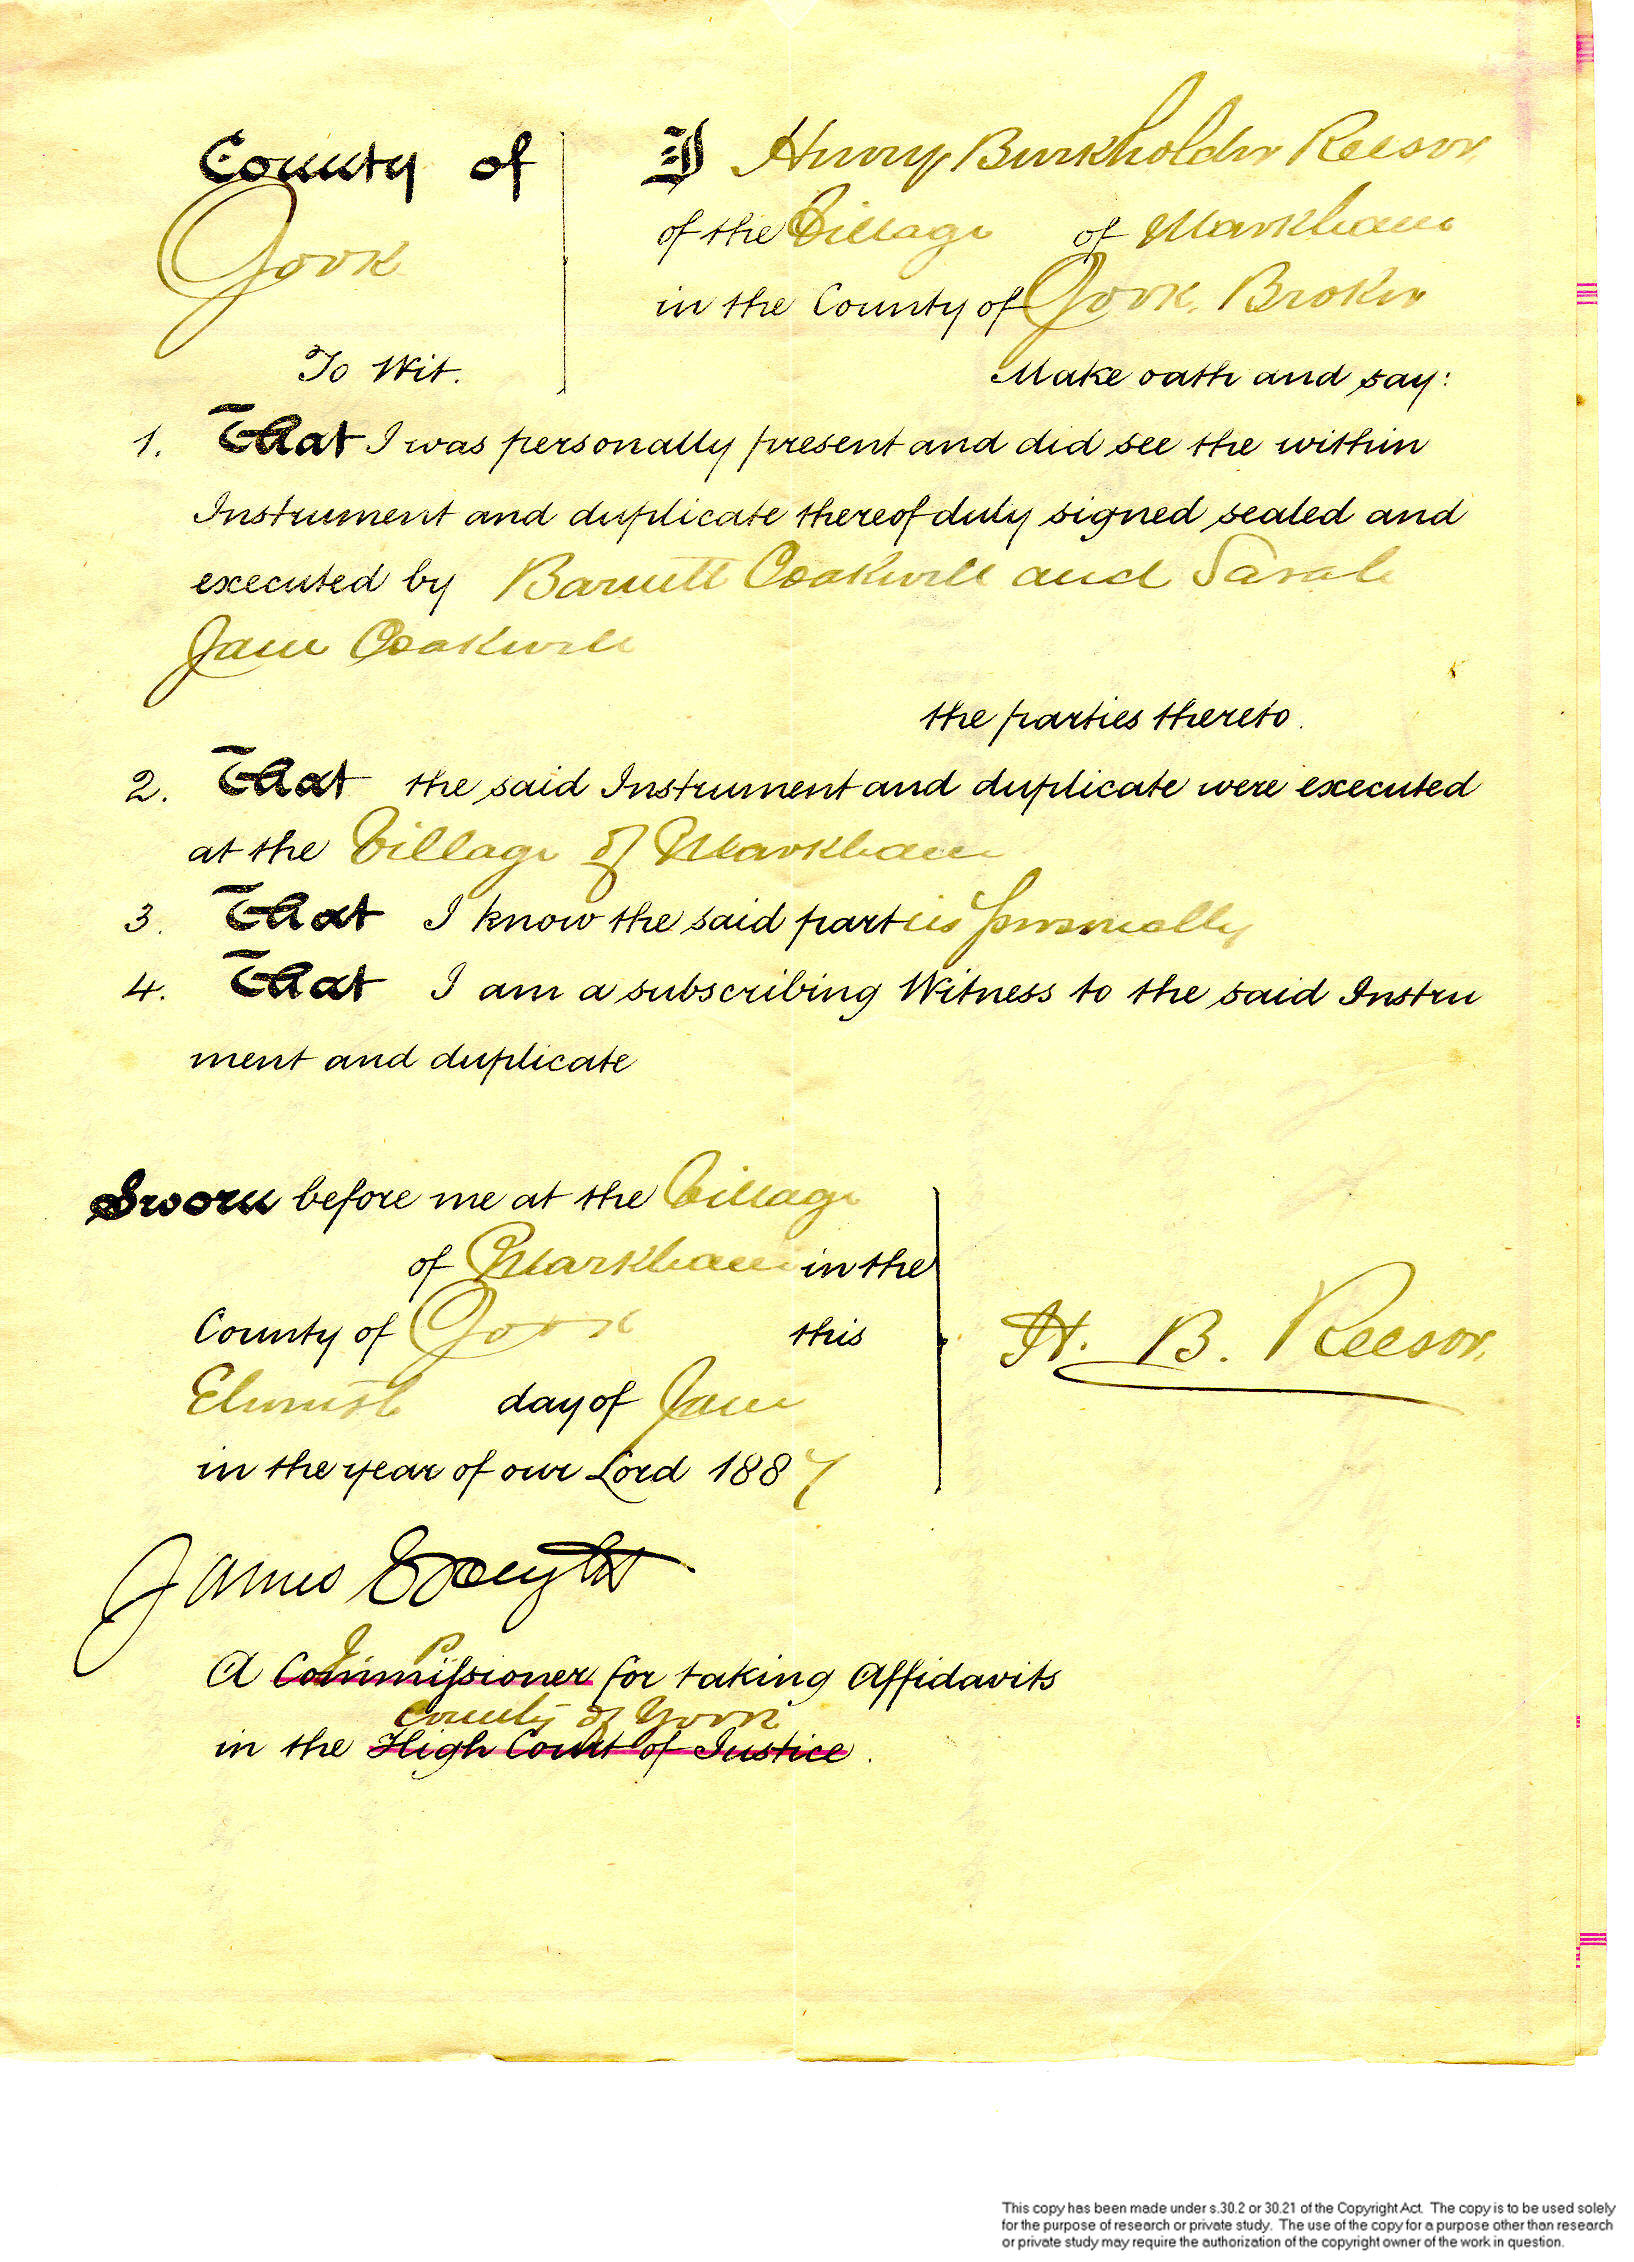 County of
York
To Wit.
I Henry Burkholder Reesor
of the Village of Markham
in the County of York, Broker
Make oath and say:
1. That I was personally present and did see the within
Instrument and duplicate thereof duly signed sealed and
executed by Barnett Coakwell and Sarah
Jane Coakwell
the parties thereto.
2. That the said Instrument and duplicate were executed
at the Village of Markham
3. That I know the said parties personally
4. That I am a subscribing Witness to the said Instru
ment and duplicate
Sworn before me at the Village
of Markham in the
County of York this
day of
in the year of our Lord 1887
H. B. Reesor.
James
J P
A Commissioner for taking Affidavits
County of York
in the High Court of Justice.
This copy has been made under s.30.2 or 30.21 of the Copyright Act. The copy is to be used solely
for the purpose of research or private study. The use of the copy for a purpose other than research
or private study may require the authorization of the copyright owner of the work in question.